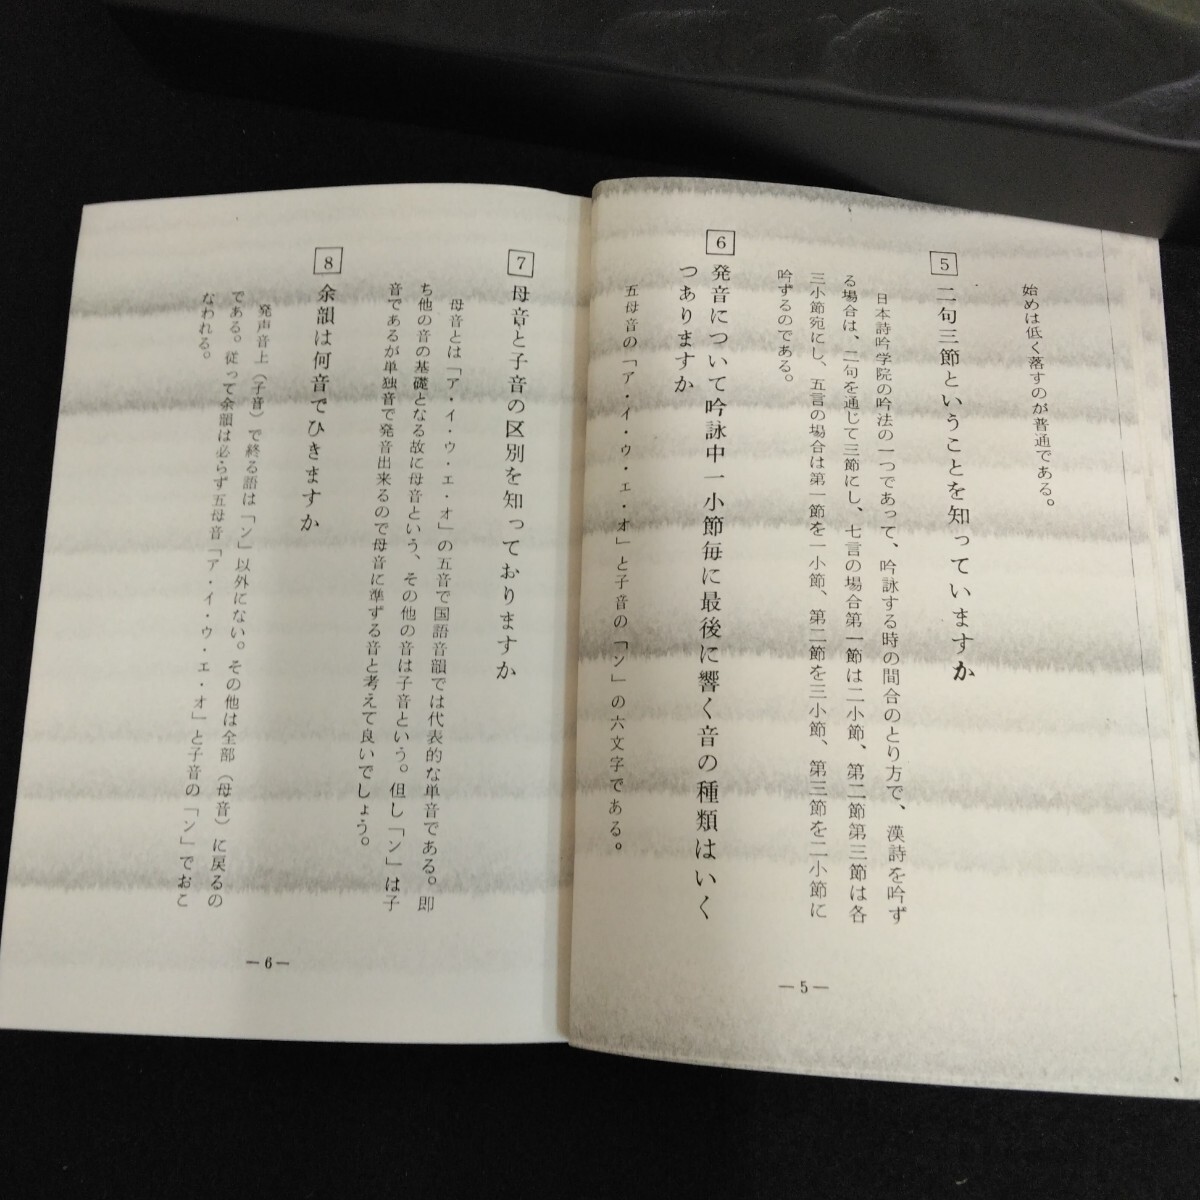 始めは低く落すのが普通である。
5
二句三節ということを知っていますか
日本詩吟学院の吟法の一つであって、吟詠する時の間合のとり方で、漢詩を吟ず
る場合は、二句を通じて三節にし、七言の場合第一節は二小節、第二節第三節は各
三小節宛にし、五言の場合は第一節を一小節、第二節を三小節、第三節を二小節に
吟ずるのである。
6
発音について吟詠中一小節毎に最後に響く音の種類はいく
つありますか
五母音の「ア・イ・ゥ・ェ・オ」と子音の「ン」の六文字である。
—5—
7
母音と子音の区別を知っておりますか
母音とは「ア・イ・ウ・エ・オ」の五音で国語音韻では代表的な単音である。即
ち他の音の基礎となる故に母音という、その他の音は子音という。但し「ン」は子
音であるが単独音で発音出来るので母音に準ずる音と考えて良いでしょう。
8
余韻は何音でひきますか
発声音上(子音)で終る語は「ン」以外にない。その他は全部(母音)に戻るの
である。従って余韻は必らず五母音「ア・イ・ウ・エ・オ」と子音の「ン」でおこ
なわれる。
—6—